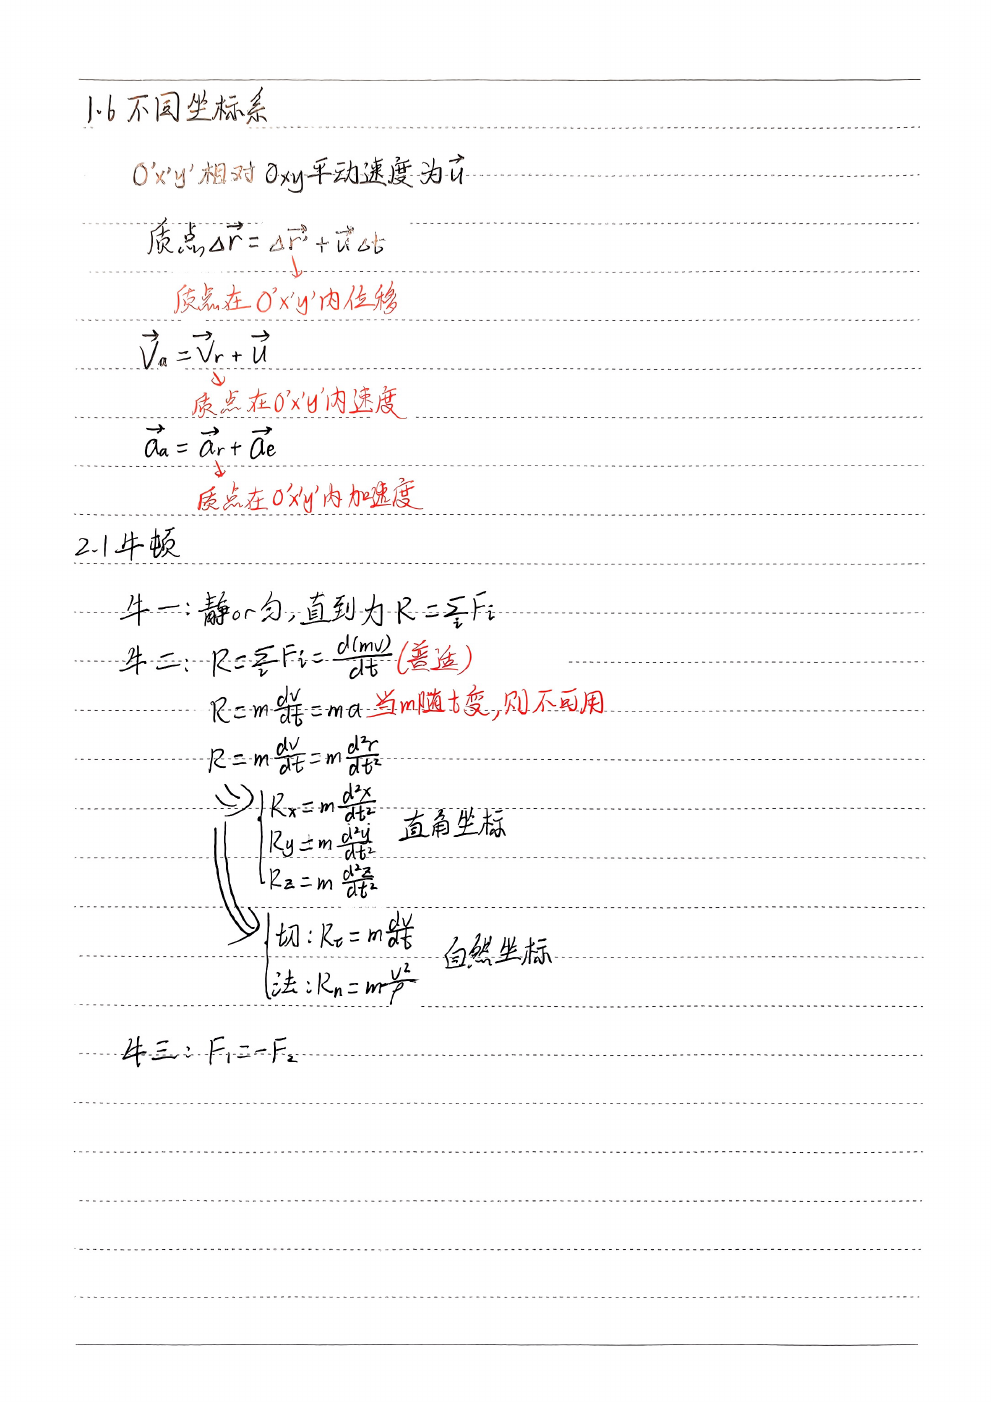 1.6 不同坐标系
O'x'y'相对 Oxy平动速度为u⃗
质点Δr⃗ = Δr⃗' + u⃗Δt
质点在O'x'y'内位移
V⃗a = V⃗r + u⃗
质点在O'x'y'内速度
a⃗a = a⃗r + a⃗e
质点在O'x'y'内加速度
2.1 牛顿
牛一:静or匀,直到为 R = Σi Fi
牛二: R = Σi Fi = d(mv)/dt (普适)
R = m dv/dt = ma 当m随t变,则不可用
R = m dv/dt = m d²r/dt²
Rx = m d²x/dt²
Ry = m d²y/dt² 直角坐标
Rz = m d²z/dt²
切: Rt = m dv/dt 自然坐标
法: Rn = m v²/ρ
牛三: F₁ = -F₂